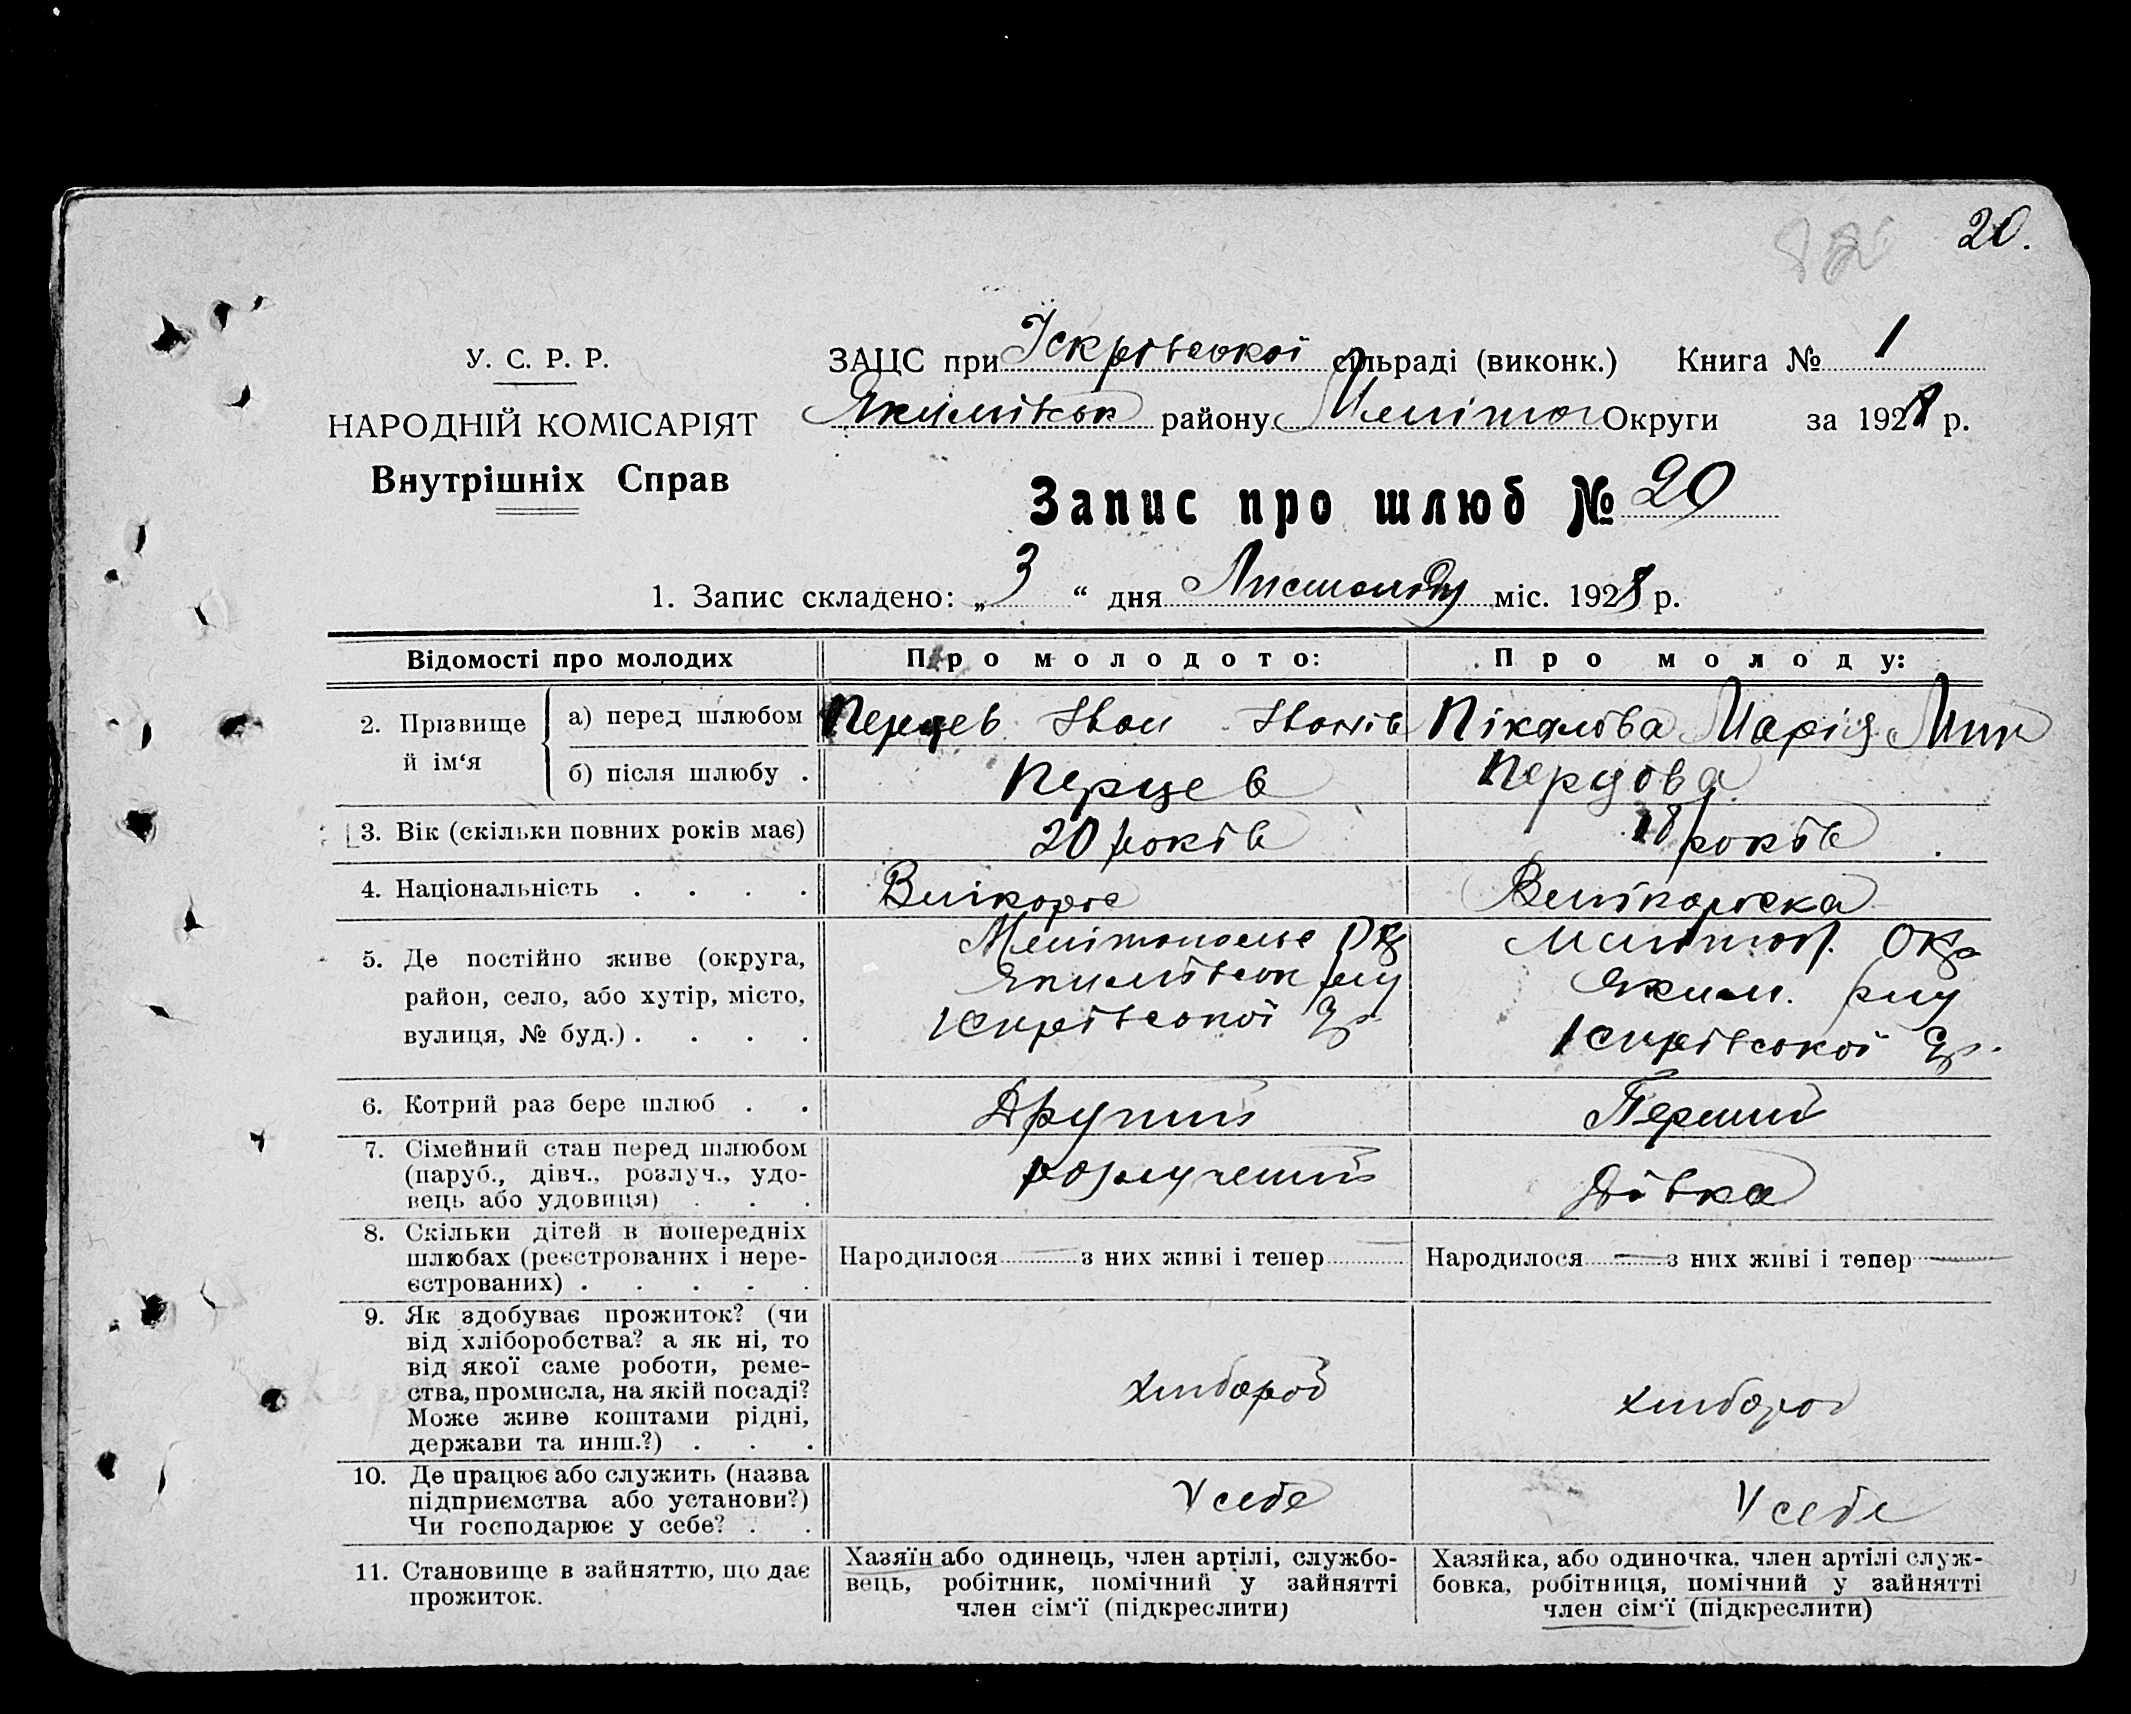 20.
У. С. Р. Р.
НАРОДНІЙ КОМІСАРІЯТ
Внутрішніх Справ
ЗАЦС при Іскрівської сільраді (виконк.) Книга № 1
Якимівськ району Меліто Округи за 1928 р.
Запис про шлюб № 20
1. Запис складено: „ 3 “ дня Листопаду міс. 1928 р.
Відомості про молодих
Про молодого:
Про молоду:
2. Прізвище й ім‘я
а) перед шлюбом
Перцев Іван Іванів
Пікалова Марія Мик
б) після шлюбу .
Перцев
Перцова
3. Вік (скільки повних років має)
20 років
18 років
4. Національність . . . .
Вілкорос
Велікороска
5. Де постійно живе (округа,
район, село, або хутір, місто,
вулиця, № буд.) . . . .
Мелітопольс Окр
Якимівськ рну
Іскрівської
Меліто. Окр
Яким. рну
Іскрівської
6. Котрий раз бере шлюб . .
Другий
Перший
7. Сімейний стан перед шлюбом
(паруб., дівч., розлуч., удо-
вець або удовиця) . . .
розлучений
Дівка
8. Скільки дітей в попередніх
шлюбах (реєстрованих і нере-
єстрованих) . . . . .
Народилося — з них живі і тепер —
Народилося — з них живі і тепер —
9. Як здобуває прожиток? (чи
від хліборобства? а як ні, то
від якої саме роботи, реме-
ства, промисла, на якій посаді?
Може живе коштами рідні,
держави та инш.?) . . .
хлібороб
хлібороб
10. Де працює або служить (назва
підприємства або установи?)
Чи господарює у себе? . .
У себе
У себе
11. Становище в зайняттю, що дає
прожиток.
Хазяїн або одинець, член артілі, службо-
вець, робітник, помічний у зайнятті
член сім‘ї (підкреслити)
Хазяйка, або одиночка, член артілі служ-
бовка, робітниця, помічний у зайнятті
член сім‘ї (підкреслити)